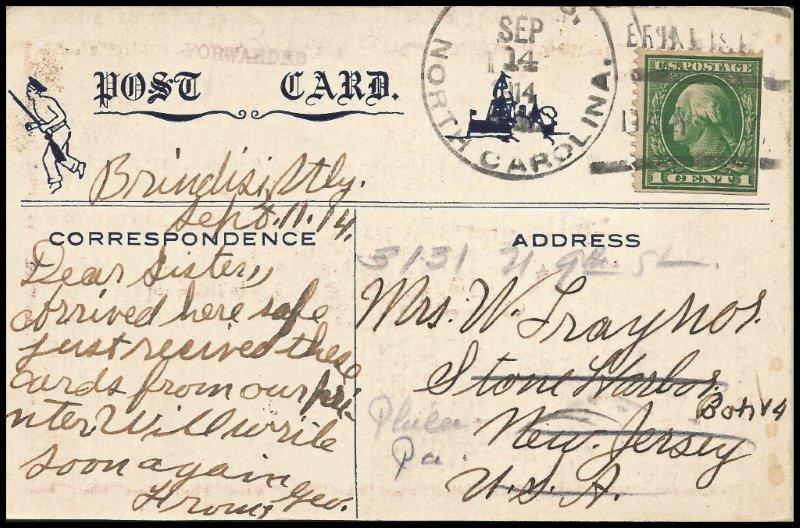 FORWARDED
SEP
14
14
NORTH CAROLINA.
BRINDISI
ITALY
U.S.POSTAGE
1 CENT 1
POST CARD.
Brindisi, Itly.
Sept. 11. 14.
CORRESPONDENCE
ADDRESS
Dear Sister,,
arrived here safe
just recived these
cards from our pri-
nter. Will write
soon again
From Geo.
3131 N 9th St.
Mrs. W. Traynor.
Stone Harbor.
Box 84
New. Jersey
U.S.A.
Phila.
Pa.